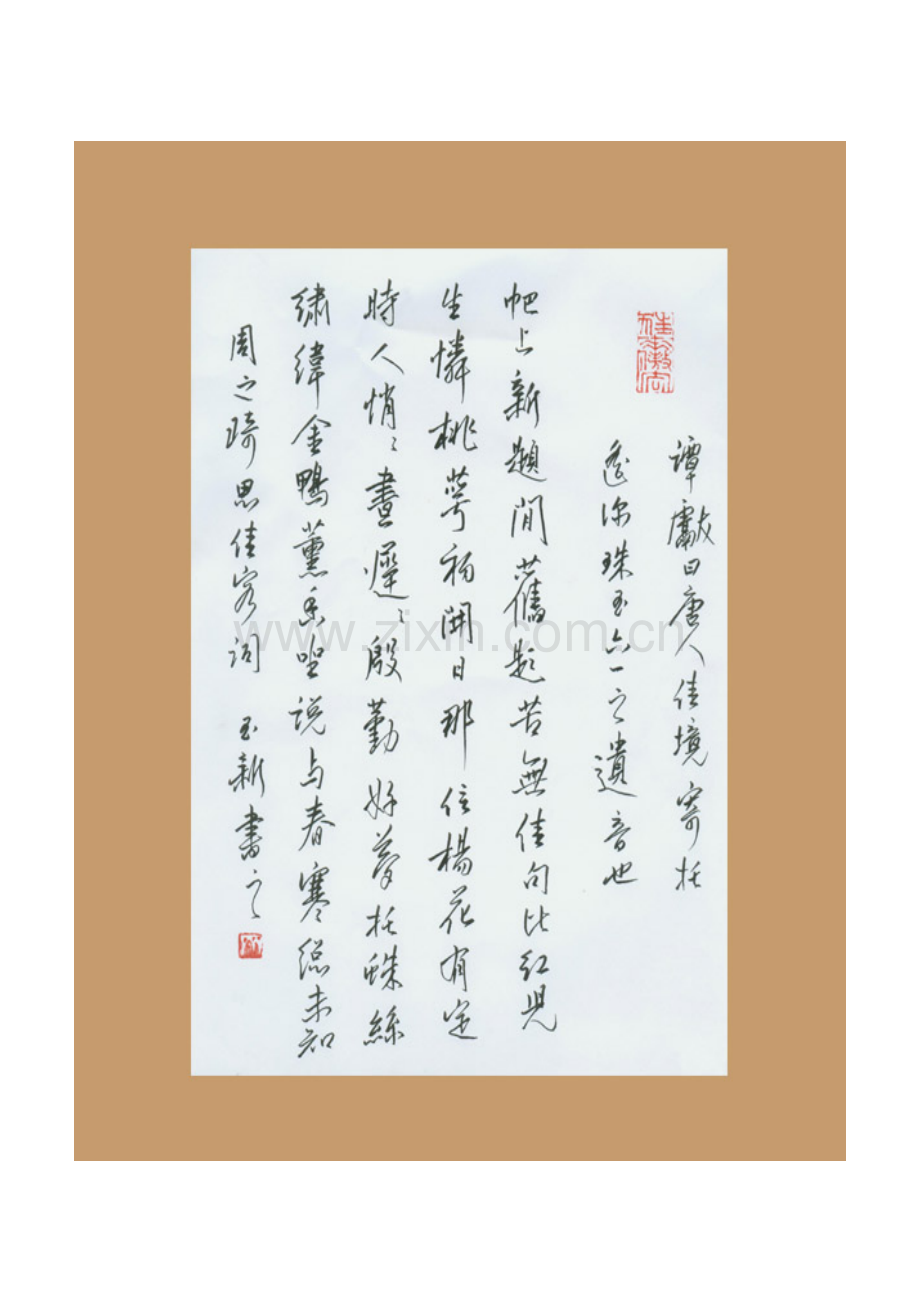 譚獻曰唐人佳境寄托
遙深珠玉六一之遺音也
帊上新題間舊題苦無佳句比紅兒
生憐桃萼初開日那信楊花有定
時人悄〻晝遲〻殷勤好夢托蛛絲
繡幃金鴨薰香坐說与春寒總未知
周之琦思佳客詞 玉新書之
www.zixin.com.cn